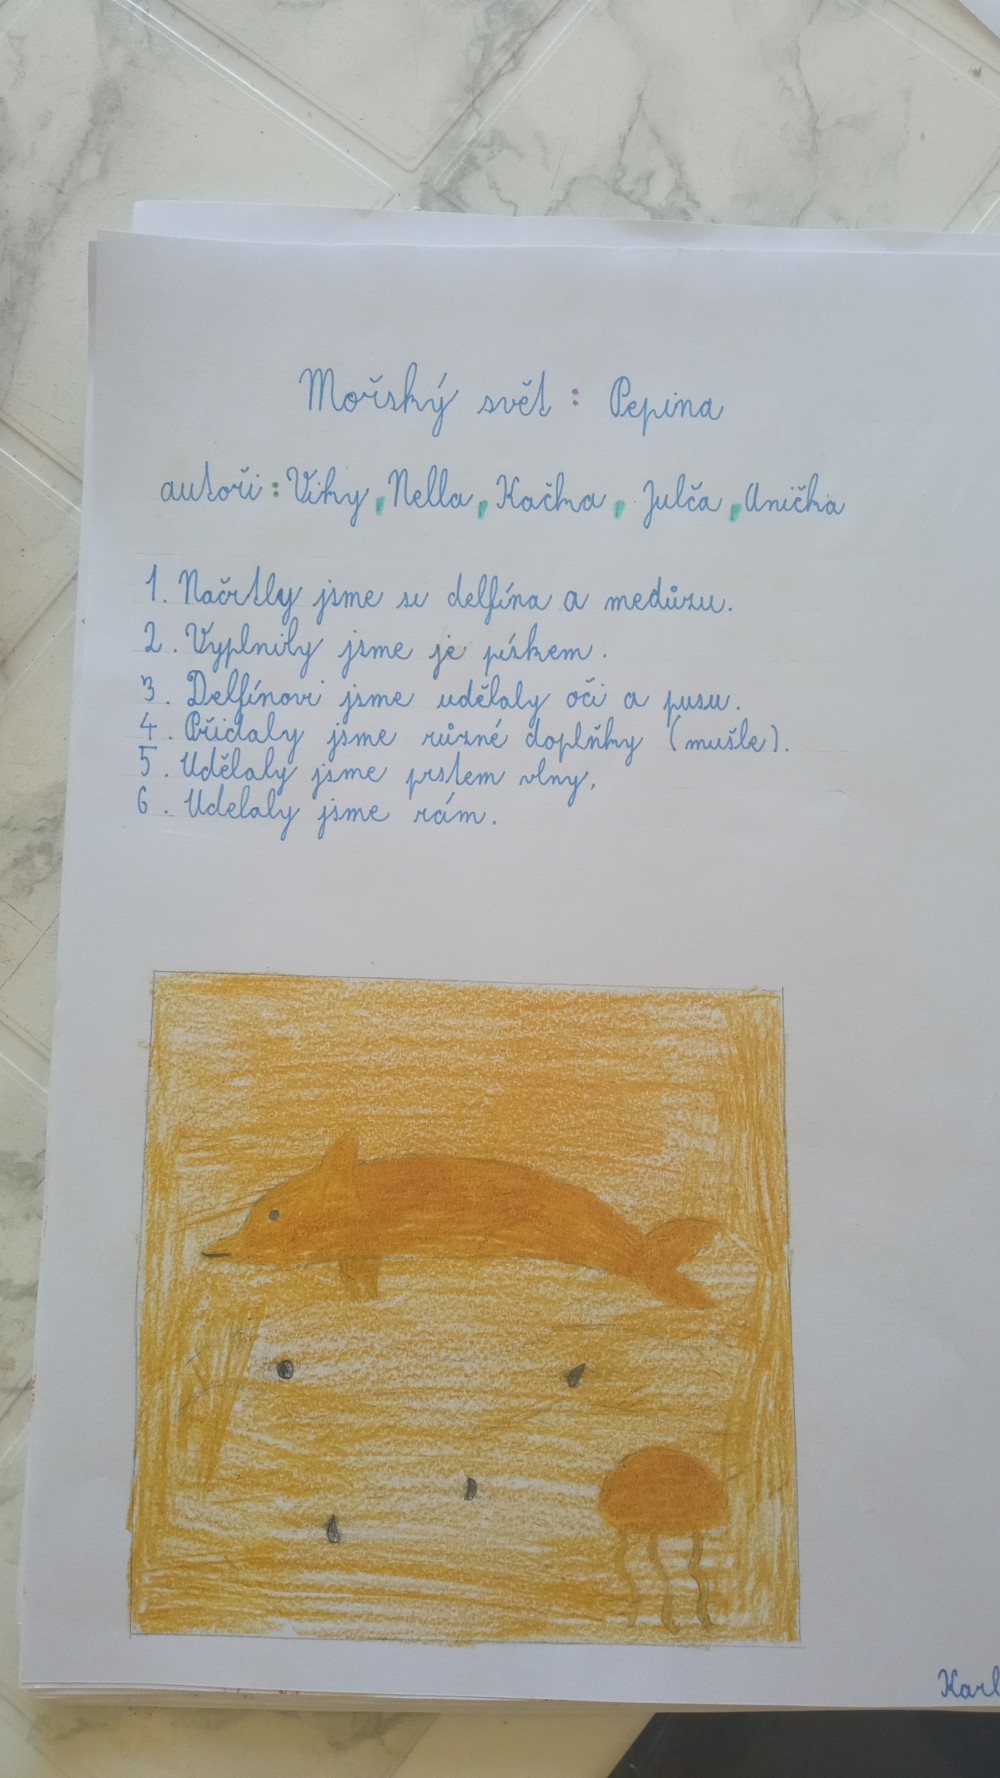 Mořský svět : Pepina
autoři : Viky, Nella, Kačka, Julča, Anička
1. Načrtly jsme si delfína a medúzu.
2. Vyplnily jsme je pískem.
3. Delfínovi jsme udělaly oči a pusu.
4. Přidaly jsme různé doplňky (mušle).
5. Udělaly jsme prstem vlny.
6. Udelaly jsme rám.
Karl